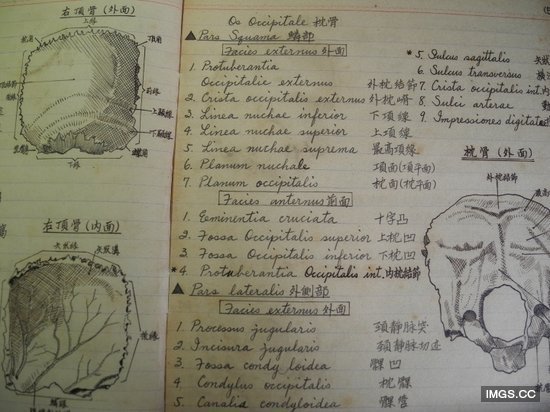 右頂骨(外面)
上緣
頂角
前緣
上顳線
下顳線
下緣
右頂骨(内面)
矢狀緣
矢狀溝
Os Occipitale 枕骨
▲Pars Squama 鱗部
Facies externus 外面
1. Protuberantia
Occipitalic externus 外枕結節
2. Crista occipitalis externus 外枕嵴
3. Linea nuchae inferior 下頂線
4. Linea nuchae superior 上項線
5. Linea nuchae suprema 最高項線
6. Planum nuchale 項面(項平面)
7. Planum occipitalis 枕面(枕平面)
Facies anternus 前面
1. Eminentia cruciata 十字凸
2. Fossa Occipitalis superior 上枕凹
3. Fossa Occipitalis inferior 下枕凹
*4. Protuberantia Occipitalis int. 内枕結節
▲Pars lateralis 外側部
Facies externus 外面
1. Processus jugularis 頚静脉突
2. Incisura jugularis 頚静脉切迹
3. Fossa condyloidea 髁凹
4. Condylus occipitalis 枕髁
5. Canalia condyloidea 髁管
*5. Sulcus sagittalis 矢狀
6. Sulcus transversus 橫
7. Crista occipitalis int. 内
8. Sulci arterae
9. Impressiones digitatae
枕骨(外面)
外枕結節
IMGS.CC